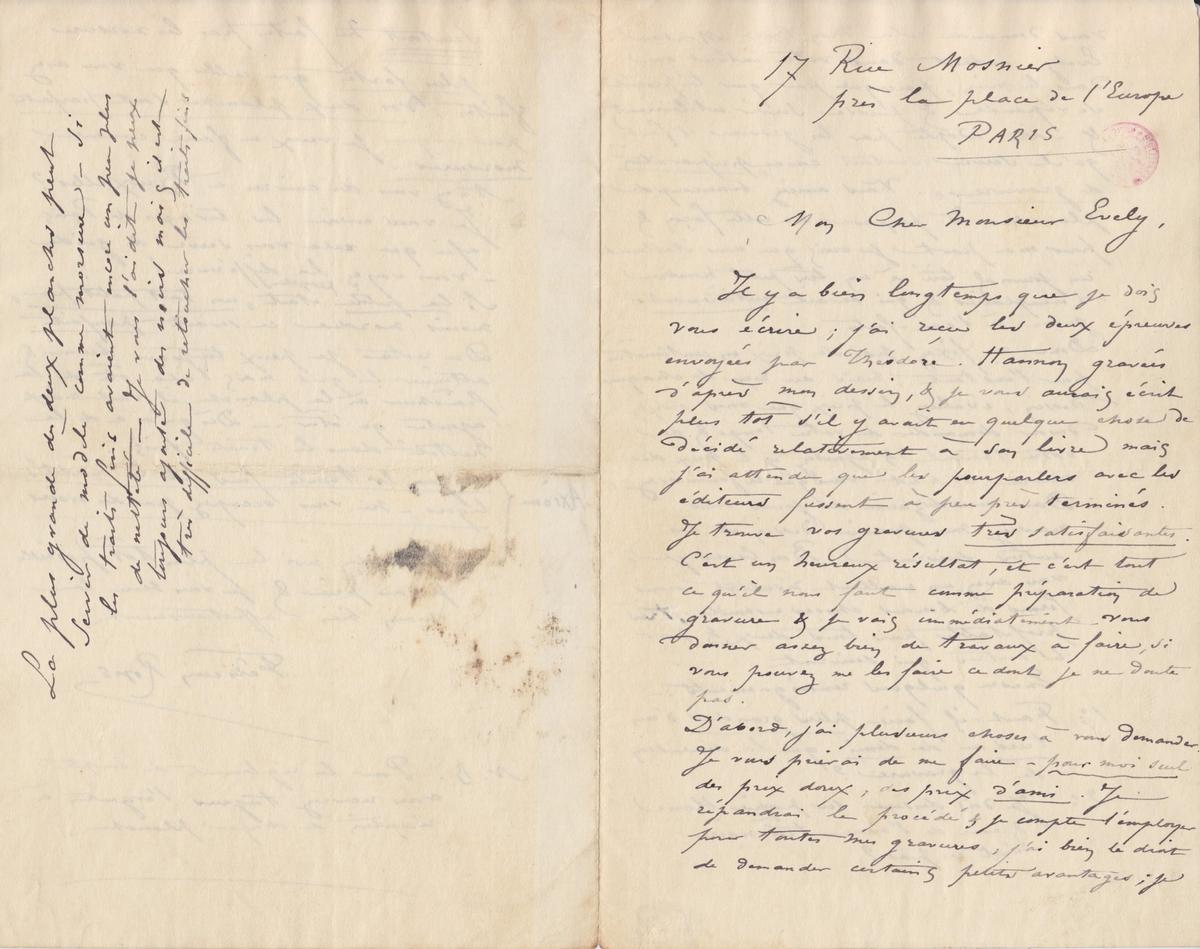 17 Rue Mosnier
près la place de l'Europe
PARIS
Mon Cher Monsieur Evely,
Il y a bien longtemps que je dois
vous écrire ; j'ai reçu les deux épreuves
envoyées par Théodore Hannon gravées
d'après mon dessin, & je vous aurais écrit
plus tôt s'il y avait eu quelque chose de
décidé relativement à son livre mais
j'ai attendu que les pourparlers avec les
éditeurs fussent à peu près terminés.
Je trouve vos gravures très satisfaisantes.
C'est un heureux résultat, et c'est tout
ce qu'il nous faut comme préparation de
gravure & je vais immédiatement vous
donner assez bien de travaux à faire, si
vous pouvez me les faire ce dont je ne doute
pas.
D'abord, j'ai plusieurs choses à vous demander.
Je vous prierai de me faire – pour moi seul
des prix doux, des prix d'ami. Je
répandrai le procédé & je compte l'employer
pour toutes mes gravures ; j'ai bien le droit
de demander certains petits avantages ; je
La plus grande des deux planches peut
servir de modèle comme morsure – si
les traits fins avaient encore un peu plus
de netteté – Je vous l'ai dit je peux
toujours ajouter des noirs mais il est
très difficile de retoucher les traits fins